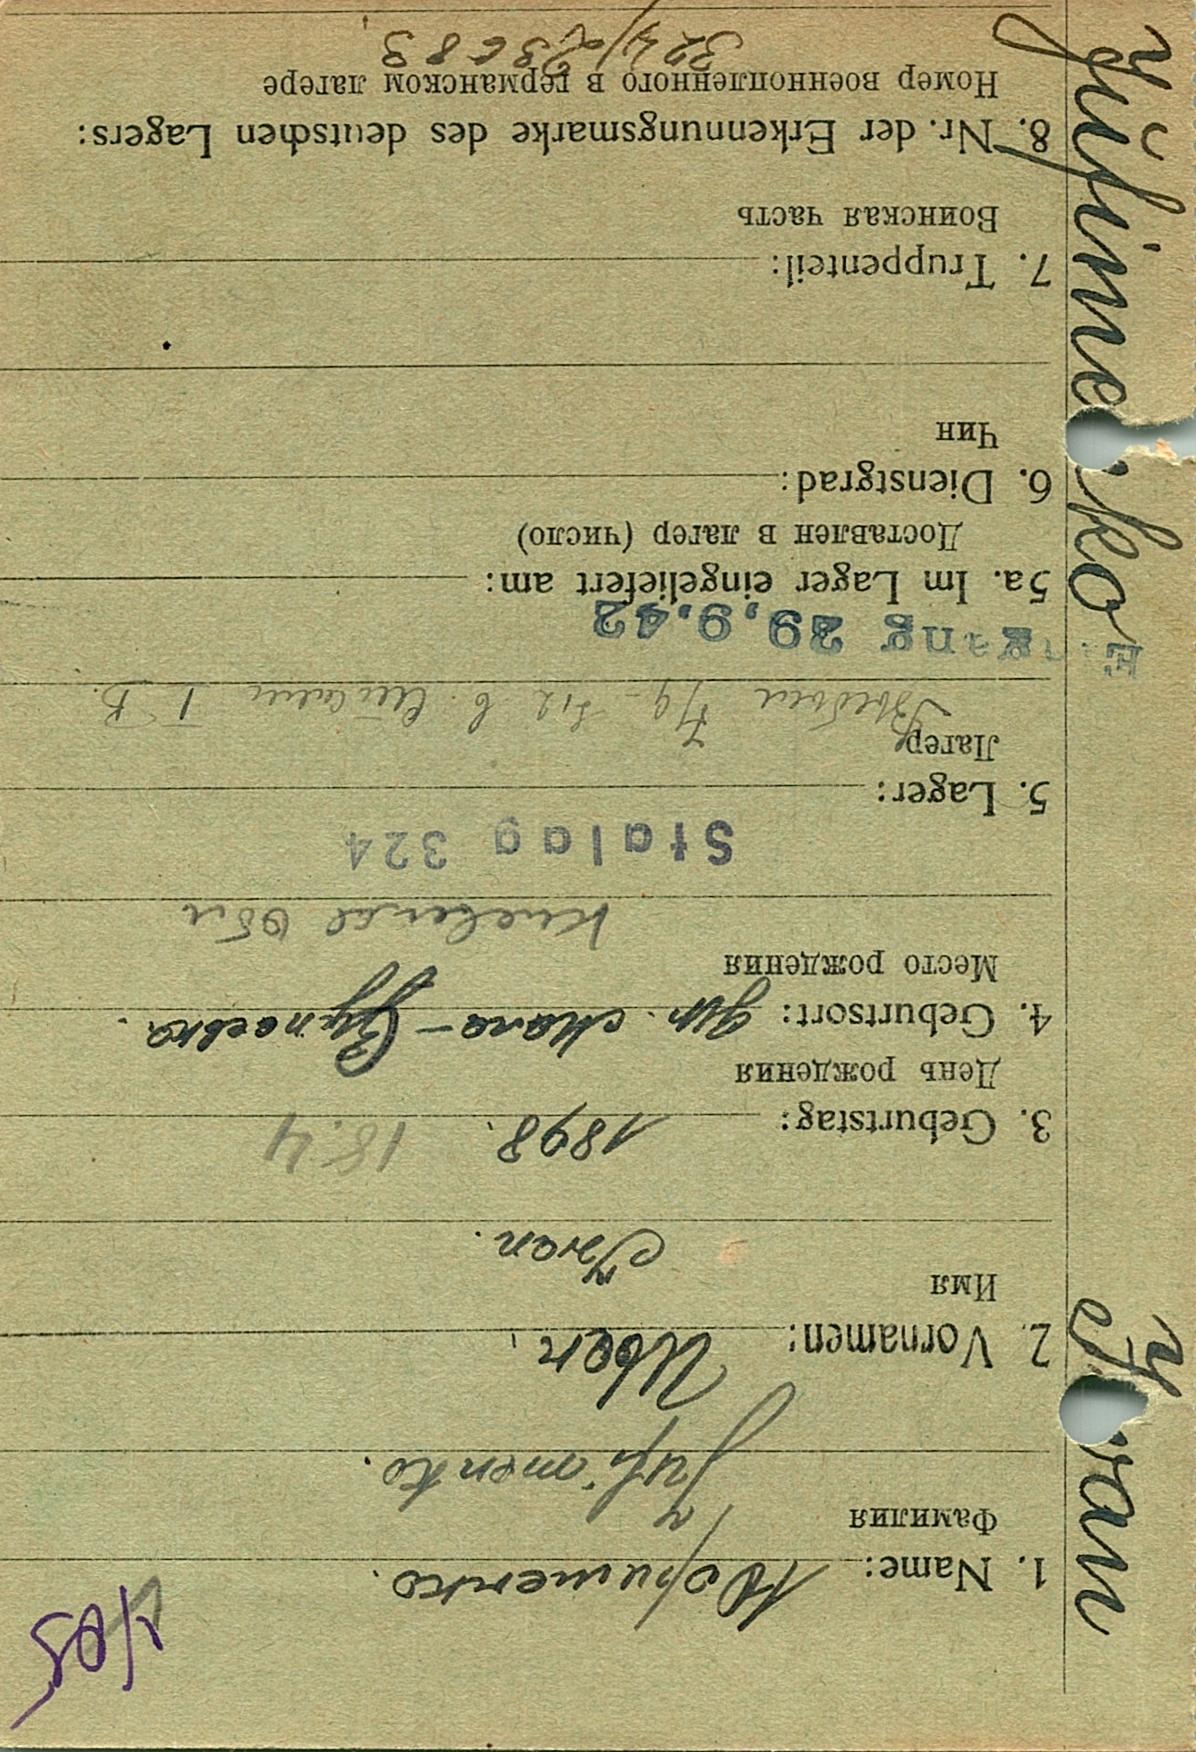 1. Name: Юфименко.
Фамилия
Jufimenko.
2. Vornamen: Иван,
Имя
Iwan.
3. Geburtstag: 1898. 18.4
День рождения
4. Geburtsort: дер.
Место рождения
Stalag 324
5. Lager:
Лагерь
Eingang 29.9.42
5a. Im Lager eingeliefert am:
Доставлен в лагерь (число)
6. Dienstgrad:
Чин
7. Truppenteil:
Воинская часть
8. Nr. der Erkennungsmarke des deutschen Lagers:
Номер военнопленного в германском лагере
324/23683
Jüfimenko Iwan